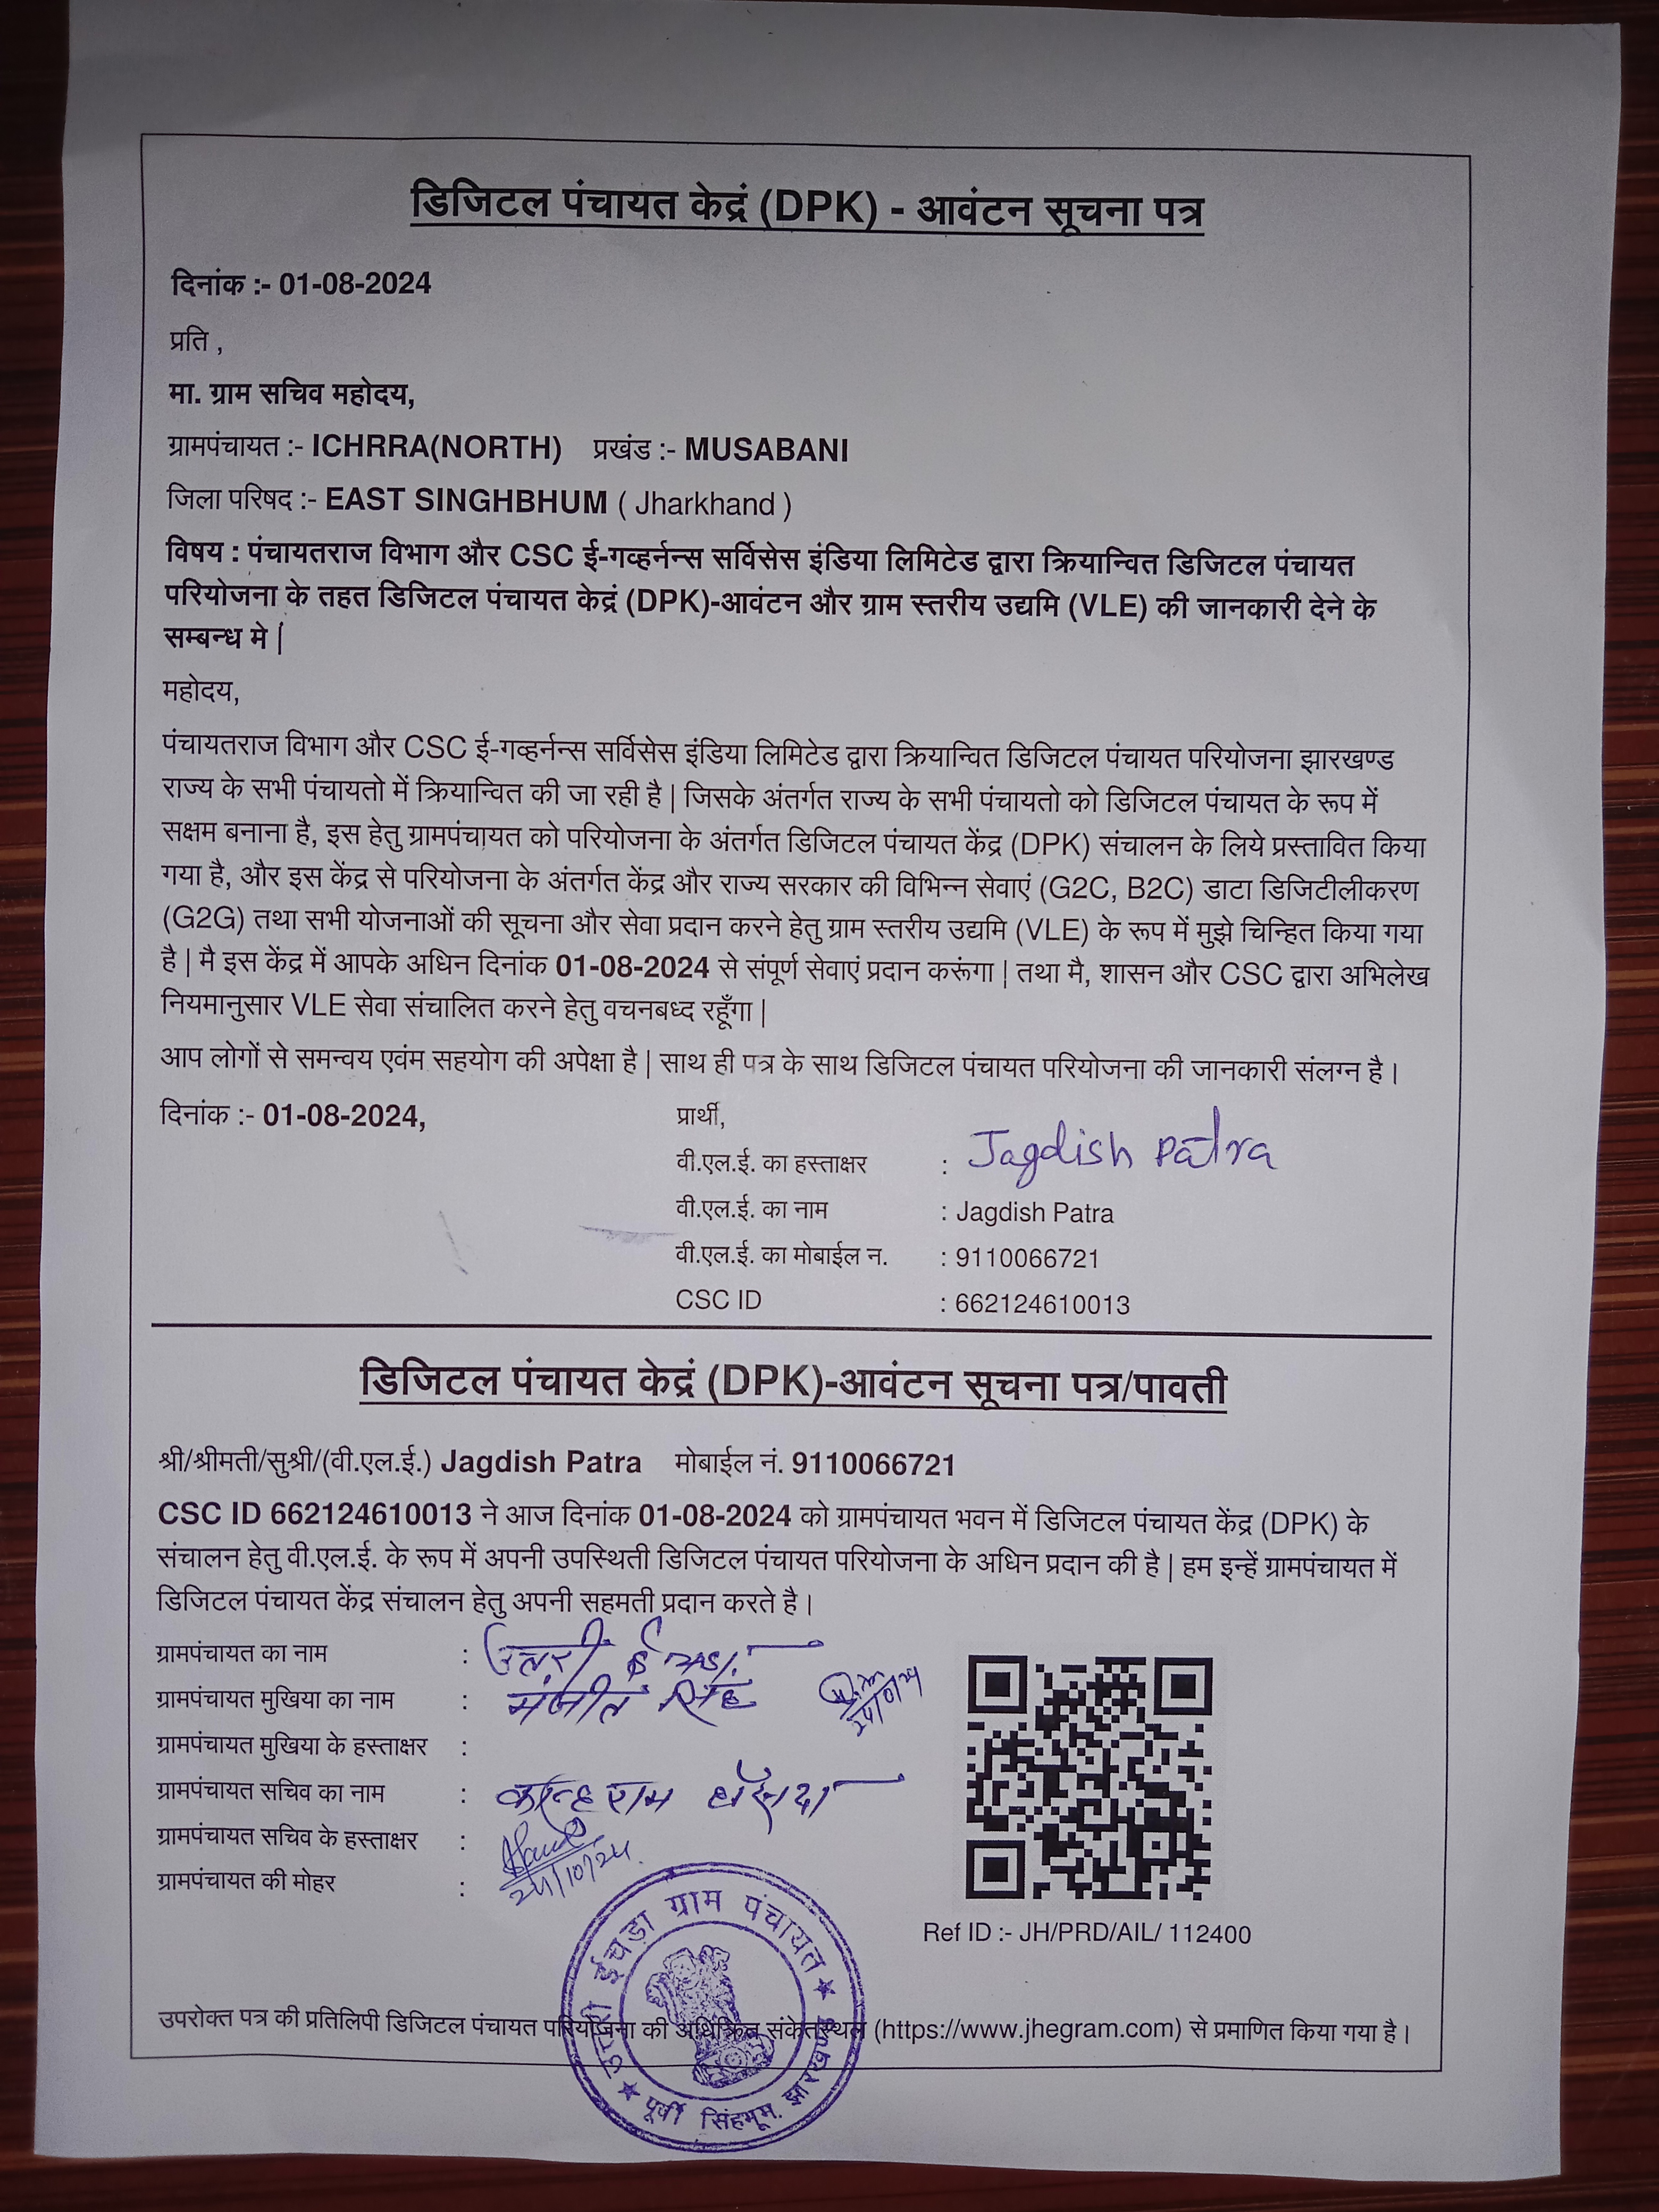 डिजिटल पंचायत केद्रं (DPK) - आवंटन सूचना पत्र
दिनांक :- 01-08-2024
प्रति ,
मा. ग्राम सचिव महोदय,
ग्रामपंचायत :- ICHRRA(NORTH) प्रखंड :- MUSABANI
जिला परिषद :- EAST SINGHBHUM ( Jharkhand )
विषय : पंचायतराज विभाग और CSC ई-गव्हर्नन्स सर्विसेस इंडिया लिमिटेड द्वारा क्रियान्वित डिजिटल पंचायत
परियोजना के तहत डिजिटल पंचायत केद्रं (DPK)-आवंटन और ग्राम स्तरीय उद्यमि (VLE) की जानकारी देने के
सम्बन्ध मे |
महोदय,
पंचायतराज विभाग और CSC ई-गव्हर्नन्स सर्विसेस इंडिया लिमिटेड द्वारा क्रियान्वित डिजिटल पंचायत परियोजना झारखण्ड
राज्य के सभी पंचायतो में क्रियान्वित की जा रही है | जिसके अंतर्गत राज्य के सभी पंचायतो को डिजिटल पंचायत के रूप में
सक्षम बनाना है, इस हेतु ग्रामपंचायत को परियोजना के अंतर्गत डिजिटल पंचायत केंद्र (DPK) संचालन के लिये प्रस्तावित किया
गया है, और इस केंद्र से परियोजना के अंतर्गत केंद्र और राज्य सरकार की विभिन्न सेवाएं (G2C, B2C) डाटा डिजिटीलीकरण
(G2G) तथा सभी योजनाओं की सूचना और सेवा प्रदान करने हेतु ग्राम स्तरीय उद्यमि (VLE) के रूप में मुझे चिन्हित किया गया
है | मै इस केंद्र में आपके अधिन दिनांक 01-08-2024 से संपूर्ण सेवाएं प्रदान करूंगा | तथा मै, शासन और CSC द्वारा अभिलेख
नियमानुसार VLE सेवा संचालित करने हेतु वचनबध्द रहूँगा |
आप लोगों से समन्वय एवंम सहयोग की अपेक्षा है | साथ ही पत्र के साथ डिजिटल पंचायत परियोजना की जानकारी संलग्न है ।
दिनांक :- 01-08-2024, प्रार्थी,
वी.एल.ई. का हस्ताक्षर : Jagdish Patra
वी.एल.ई. का नाम : Jagdish Patra
वी.एल.ई. का मोबाईल न. : 9110066721
CSC ID : 662124610013
डिजिटल पंचायत केद्रं (DPK)-आवंटन सूचना पत्र/पावती
श्री/श्रीमती/सुश्री/(वी.एल.ई.) Jagdish Patra मोबाईल नं. 9110066721
CSC ID 662124610013 ने आज दिनांक 01-08-2024 को ग्रामपंचायत भवन में डिजिटल पंचायत केंद्र (DPK) के
संचालन हेतु वी.एल.ई. के रूप में अपनी उपस्थिती डिजिटल पंचायत परियोजना के अधिन प्रदान की है | हम इन्हें ग्रामपंचायत में
डिजिटल पंचायत केंद्र संचालन हेतु अपनी सहमती प्रदान करते है ।
ग्रामपंचायत का नाम : उत्तरी
ग्रामपंचायत मुखिया का नाम : मंजीत सिंह
ग्रामपंचायत मुखिया के हस्ताक्षर :
ग्रामपंचायत सचिव का नाम : कान्हूराम हाँसदा
ग्रामपंचायत सचिव के हस्ताक्षर : 24/10/24
ग्रामपंचायत की मोहर :
Ref ID :- JH/PRD/AIL/ 112400
उत्तरी ईचड़ा ग्राम पंचायत
पूर्वी सिंहभूम. झारखण्ड
उपरोक्त पत्र की प्रतिलिपी डिजिटल पंचायत परियोजना की अधिक्रित संकेतस्थल (https://www.jhegram.com) से प्रमाणित किया गया है ।